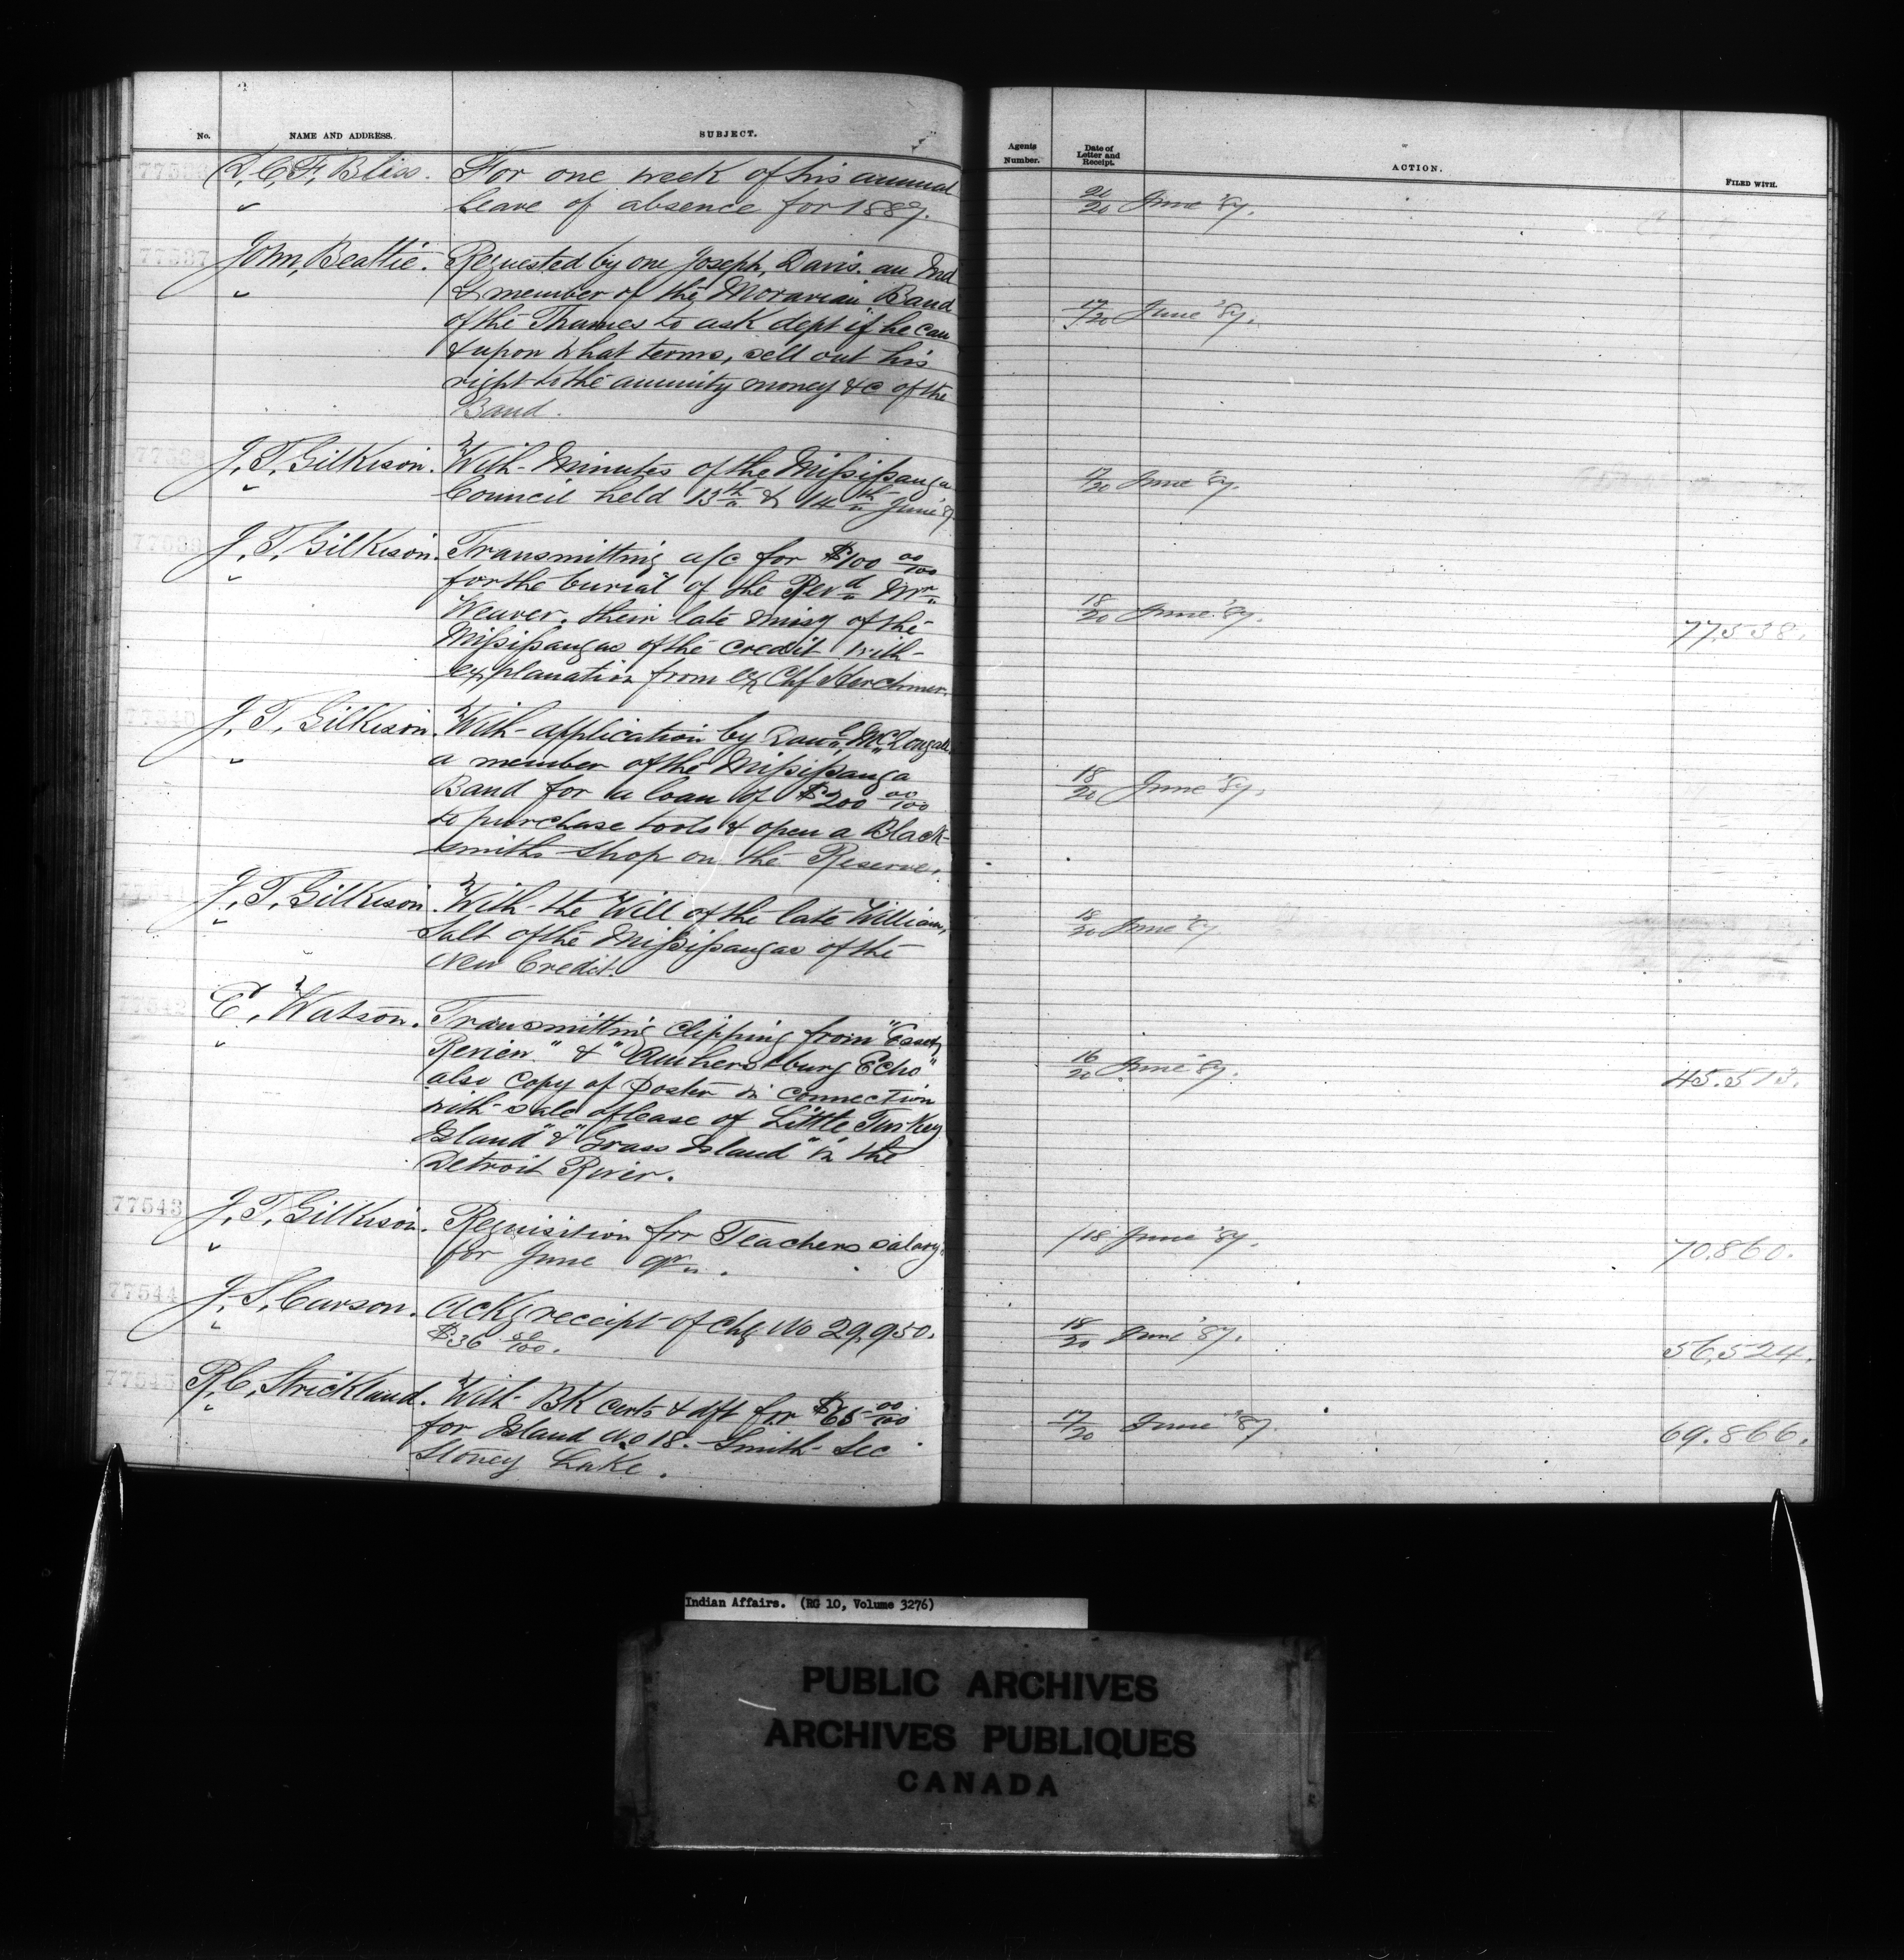 No. NAME AND ADDRESS. SUBJECT.
77536 D. C. F. Bliss. For one week of his annual
leave of absence for 1887.
77537 John Beattie. Requested by one Joseph Davis. an Ind
& member of the Moravian Band
of the Thames to ask dept if he can
& upon what terms, sell out his
right to the annuity money &c of the
Band.
77538 J. T. Gilkison. With Minutes of the Missisauga
Council held 13th & 14th June '87.
77539 J. T. Gilkison. Transmitting a/c for $100 00/100
for the burial of the Revd Mr
Weaver. their late missy of the
Missisaugas of the Credit with
explanation from ex Chf Herchmer.
77540 J. T. Gilkison. With application by McDougall
a member of the Missisauga
Band for a loan of $200 00/100
to purchase tools & open a Black-
smiths shop on the Reserve.
77541 J. T. Gilkison. With the Will of the late William
Salt of the Missisaugas of the
New Credit.
77542 E. Watson. Transmitting clipping from "Essex
Review" & "Amherstburg Echo"
also copy of poster in connection
with sale of lease of Little Turkey
Island" & "Grass Island" in the
Detroit River.
77543 J. T. Gilkison. Requisition for Teachers salary
for June qr.
77544 J. S. Carson. Ackg receipt of chq No 29,950.
$36 80/100.
77545 R. C. Strickland. With BK certs & dft for $65 00/100
for Island No 18. Smith Sec
Stoney Lake.
Agents Number. Date of Letter and Receipt. ACTION. FILED WITH.
20/20 June '87.
17/20 June '87.
17/20 June '87.
18/20 June '87. 77,538.
18/20 June '87.
18/20 June '87
16/20 June '87. 45.513.
/18 June '87. 70,860.
18/20 June '87. 56,524.
17/20 June '87. 69.866.
Indian Affairs. (RG 10, Volume 3276)
PUBLIC ARCHIVES
ARCHIVES PUBLIQUES
CANADA